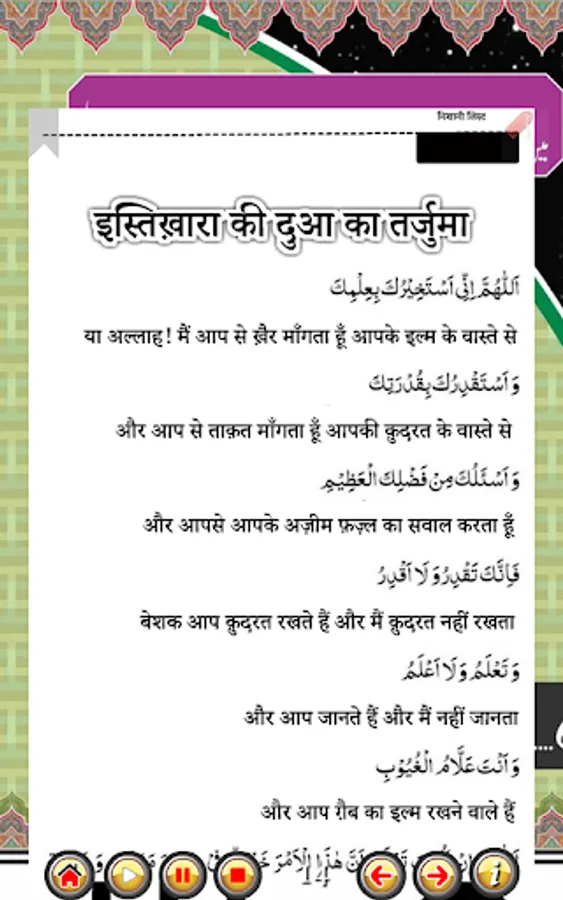 निशानी लिस्ट
इस्तिख़ारा की दुआ का तर्जुमा
اَللّٰهُمَّ اِنِّىْ اَسْتَخِيْرُكَ بِعِلْمِكَ
या अल्लाह! मैं आप से ख़ैर माँगता हूँ आपके इल्म के वास्ते से
وَ اَسْتَقْدِرُكَ بِقُدْرَتِكَ
और आप से ताक़त माँगता हूँ आपकी क़ुदरत के वास्ते से
وَ اَسْئَلُكَ مِنْ فَضْلِكَ الْعَظِيْمِ
और आपसे आपके अज़ीम फ़ज़्ल का सवाल करता हूँ
فَاِنَّكَ تَقْدِرُ وَ لَا اَقْدِرُ
बेशक आप क़ुदरत रखते हैं और मैं क़ुदरत नहीं रखता
وَ تَعْلَمُ وَ لَا اَعْلَمُ
और आप जानते हैं और मैं नहीं जानता
وَ اَنْتَ عَلَّامُ الْغُيُوْبِ
और आप ग़ैब का इल्म रखने वाले हैं
هٰذَا الْاَمْرَ
14